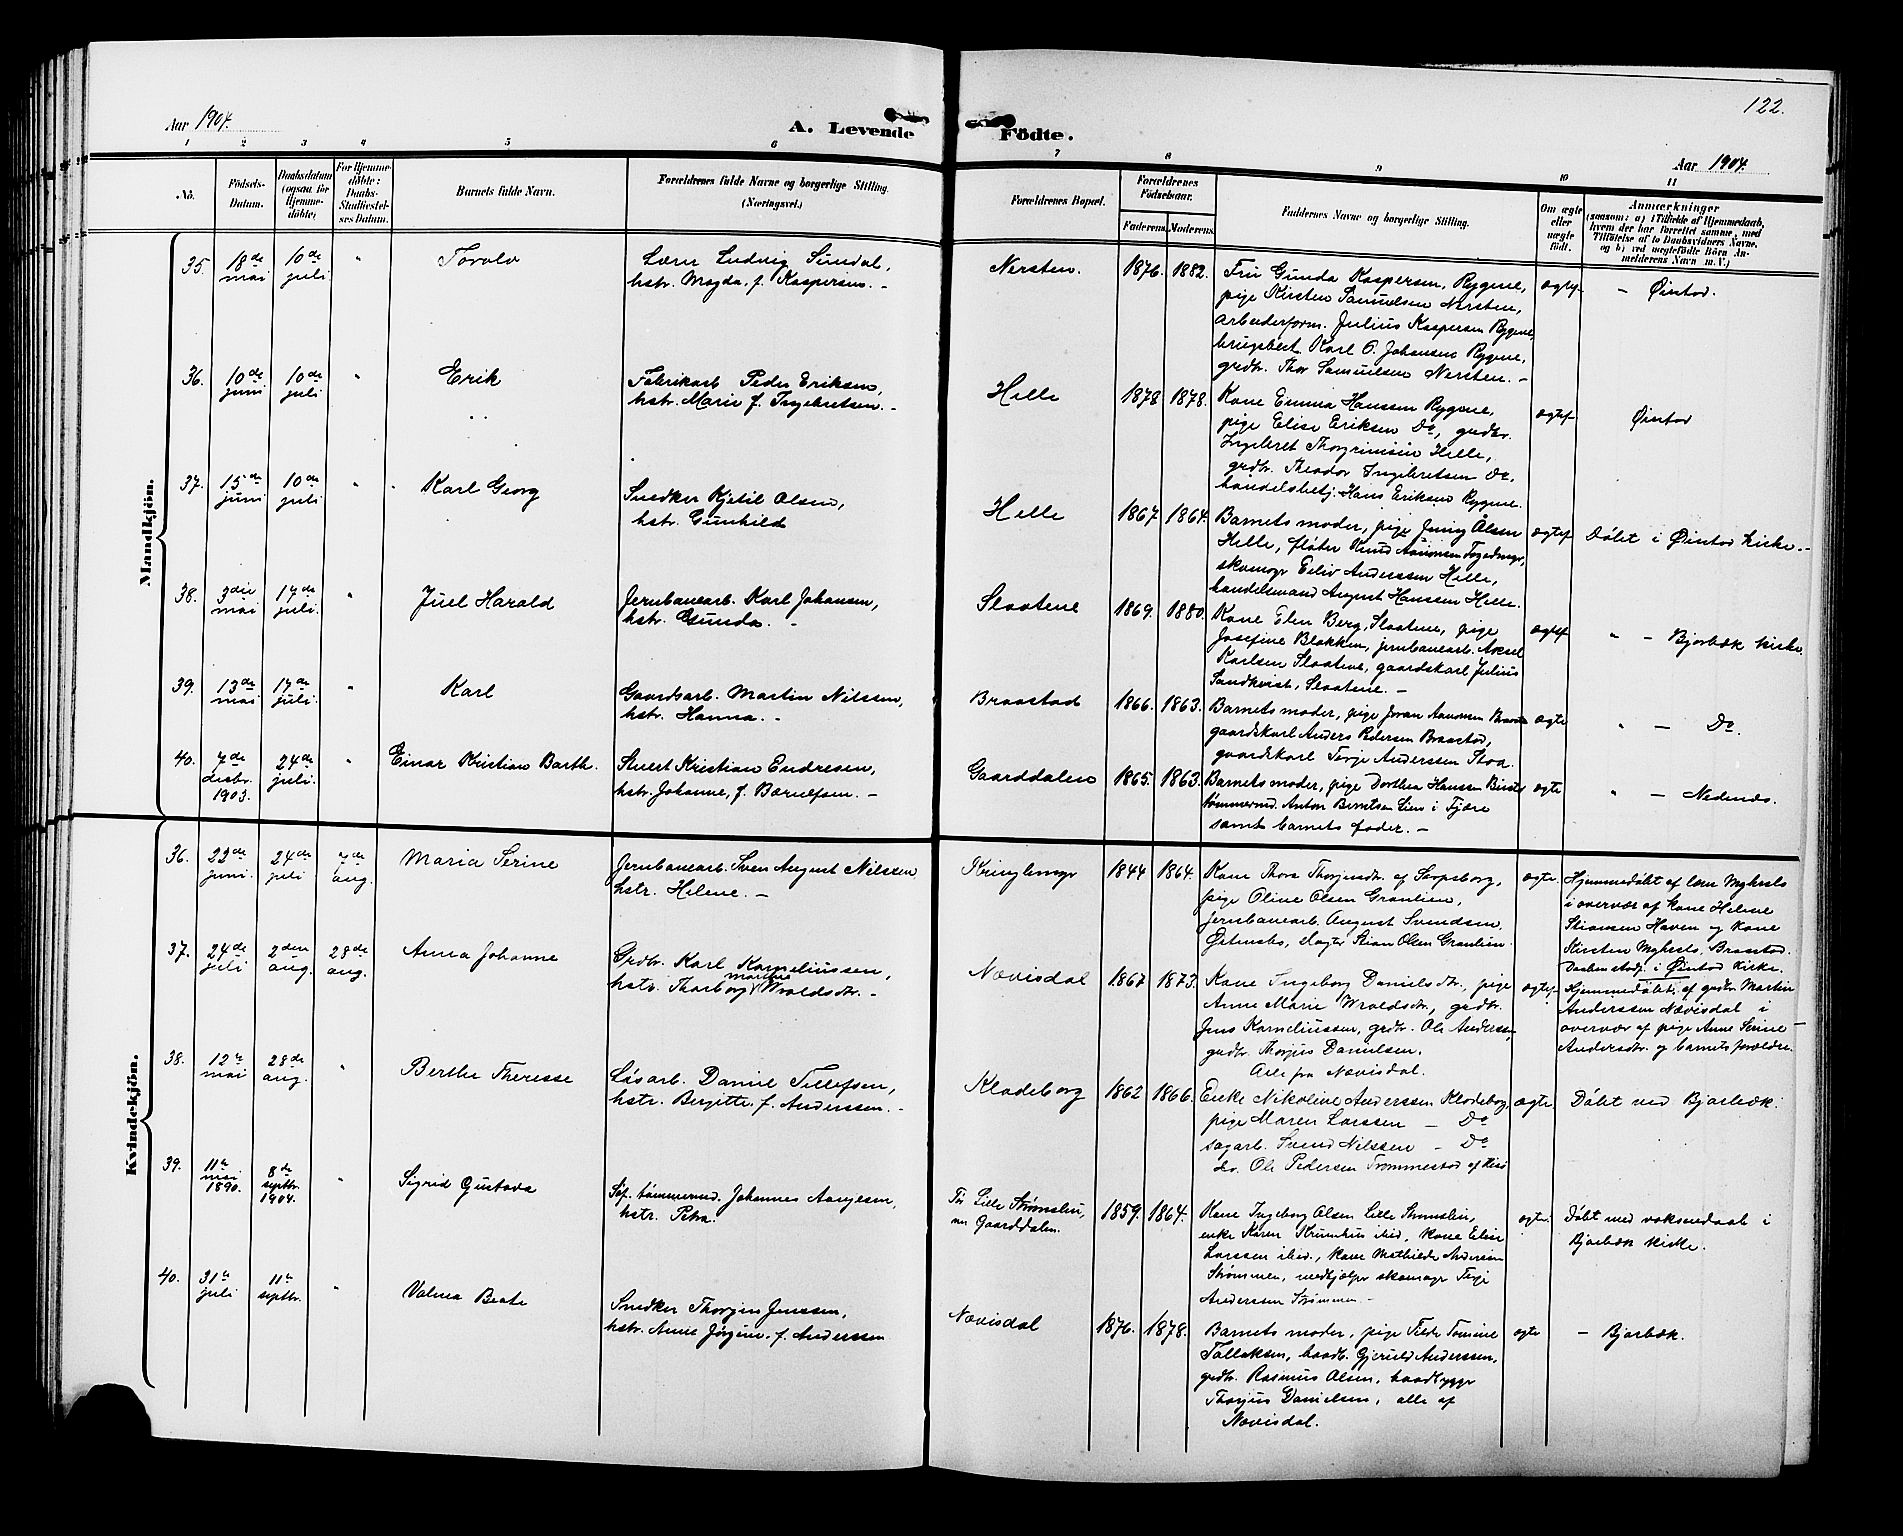 122.
Aar 1904.
A. Levende Födte.
Aar 1904.
1 2 3 4 5 6 7 8 9 10 11
No.
Födsels-
Datum.
Daabsdatum
(ogsaa for
Hjemme-
döbte;
For Hjemme-
döbte:
Daabs-
Stadfæstel-
ses Datum.
Barnets fulde Navn.
Forældrenes fulde Navne og borgerlige Stilling.
(Næringsvei.)
Forældrenes Bopæl.
Forældrenes
Födselsaar.
Faderens.
Moderens.
Faddernes Navne og borgerlige Stilling.
Om ægte
eller
uægte
födt.
Anmærkninger
(saasom: a) i Tilfælde af Hjemmedaab,
hvem der har forrettet samme, med
Tilföielse af to Daabsvidners Navne,
og b) ved uegtefödte Börn An-
melderens Navn m. V.)
Mandkjön.
35. 18de mai 10de juli " Torolv
Lærer Ludvig Sundal,
hstr. Magda, f. Kaspersen. -
Nersten. 1876. 1882.
Fru Gunda Kaspersen, Rygene,
pige Kirsten Samuelsen Nersten,
arbeiderform. Julius Kaspersen Rygene,
brugsbest. Karl O. Johansen Rygene,
grdbr. Thor Samuelsen Nersten. -
ægtef
- Øiestad.
36. 10de juni 10de juli " Erik
Fabrikarb. Peder Eriksen,
hstr. Marie f. Ingebretsen. -
Helle 1878 1878.
Kone Emma Hanssen Rygene,
pige Elise Eriksen Do, grdbr.
Ingebret Thorgrimsen Helle,
grdbr. Theodor Ingebretsen Do.
handelsbetj. Hans Eriksen Rygene.
ægtef
Øiestad
37. 15de juni 10de juli " Karl Georg
Snedker Kjetil Olsen,
hstr. Gunhild
Helle 1867. 1864.
Barnets moder, pige Jenny Olsen
Helle, fløter Knud Aanonsen
skomagr Eiliv Anderssen Helle,
handelsmand August Hanssen Helle.
ægtef
Døbt i Øiestad kirke. -
38. 3die mai 17de juli. " Juel Harald
Jernbanearb. Karl Johansen,
hstr. Gunda. -
Slaatene 1869. 1880.
Kone Elen Berg, Slaatene, pige
Josefine Blakken, jernbanearb. Aksel
Karlsen Slaatene, gaardskarl Julius
Sandkvist, Slaatene. -
ægtef
" - Bjorbæk kirke.
39. 13de mai 17de juli. " Karl
Gaardsarb. Martin Nilssen,
hstr. Hanna. -
Braastad 1866. 1863.
Barnets moder, pige Joran Aanonsen
gaardskarl Anders Pedersen Braastad,
gaardskarl Terje Anderssen Stoa.
ægte
" - Do.
40. 7de desbr. 1903. 24de juli. " Einar Kristian Barth.
Stuert Kristian Endresen,
hstr. Johanne, f. Børuelsen. -
Gaarddalen 1865. 1863.
Barnets moder, pige Dorthea Hanssen
tømmermd. Anton Berntsen Lien i Fjære
samt barnets fader. -
ægte
" - Nedenæs.
Kvindekjön.
36. 22de juni. 24de juli 7de aug. Maria Serine
Jernbanearb. Sven August Nilssen
hstr. Helene. -
Kringlemyr 1844 1864.
Kone Thora Thorjusdtr. af Skrapsborg,
pige Oline Olsen Granlien,
jernbanearb. August Svendsen
Østensbø, slagter Stian Olsen Granlien.
ægte.
Hjemmedøbt af lærer Myhrels
i overvær af kone Helene
Stiansen Haven og kone
Kirsten Myhrels, Braastad.
Daaben stadf. i Øiestad kirke.
37. 24de juli 2den aug. 28de aug. Anna Johanne
Grdbr. Karl Korneliussen,
hstr. Thorborg Marthe Wroldsdtr. -
Nævisdal 1867 1873.
Kone Ingeborg Danielsdtr., pige
Anne Marie Wroldsdtr., grdbr.
Jens Korneliussen, grdbr. Ole Anderssen,
grdbr. Thorjus Danielsen.
Alle fra Nævisdal.
ægtef
Hjemmedøbt af grdbr. Martin
Anderssen Nævisdal i
overvær af pige Anne Serine -
Andersdtr. og barnets forældre.
38. 12te mai 28de aug. " Berthe Theresse
Løsarb. Daniel Tellefsen,
hstr. Birgitte, f. Anderssen. -
Kladeborg 1862 1866.
Enke Nikoline Anderssen Klodeborg,
pige Maren Larssen - Do
sagarb. Svend Nilssen - Do
do. Ole Pedersen Trommestad af Hisø
ægte
Døbt ved Bjorbæk.
39. 11te mai 1890. 8de septbr. 1904. " Sigrid Gustava
Søf. tømmermd. Johannes Aanesen,
hstr. Petra.
Før Lille Strømslien,
nu Gaarddalen. 1859. 1864.
Kone Ingeborg Olsen Lille Strømslien,
enke Karen Krumhus ibid., kone Elise
Larssen ibid., kone Mathilde Andersen
Strømmen, medhjælper skomagr Terje
Anderssen Strømmen. -
ægte.
Døbt med voksendaab i
Bjorbæk kirke.
40. 31te juli 11te septbr. " Valma Beate
Snedker Thorjus Jenssen,
hstr. Anne Jørgine, f. Anderssen
Nævisdal 1876. 1878.
Barnets moder, pige Tilda Tomine
Tallaksen, baadb. Gjeruld Anderssen,
grdbr. Rasmus Olsen, baadbygger
Thorjus Danielsen, alle af
Nævisdal.
ægte
- Bjorbæk.